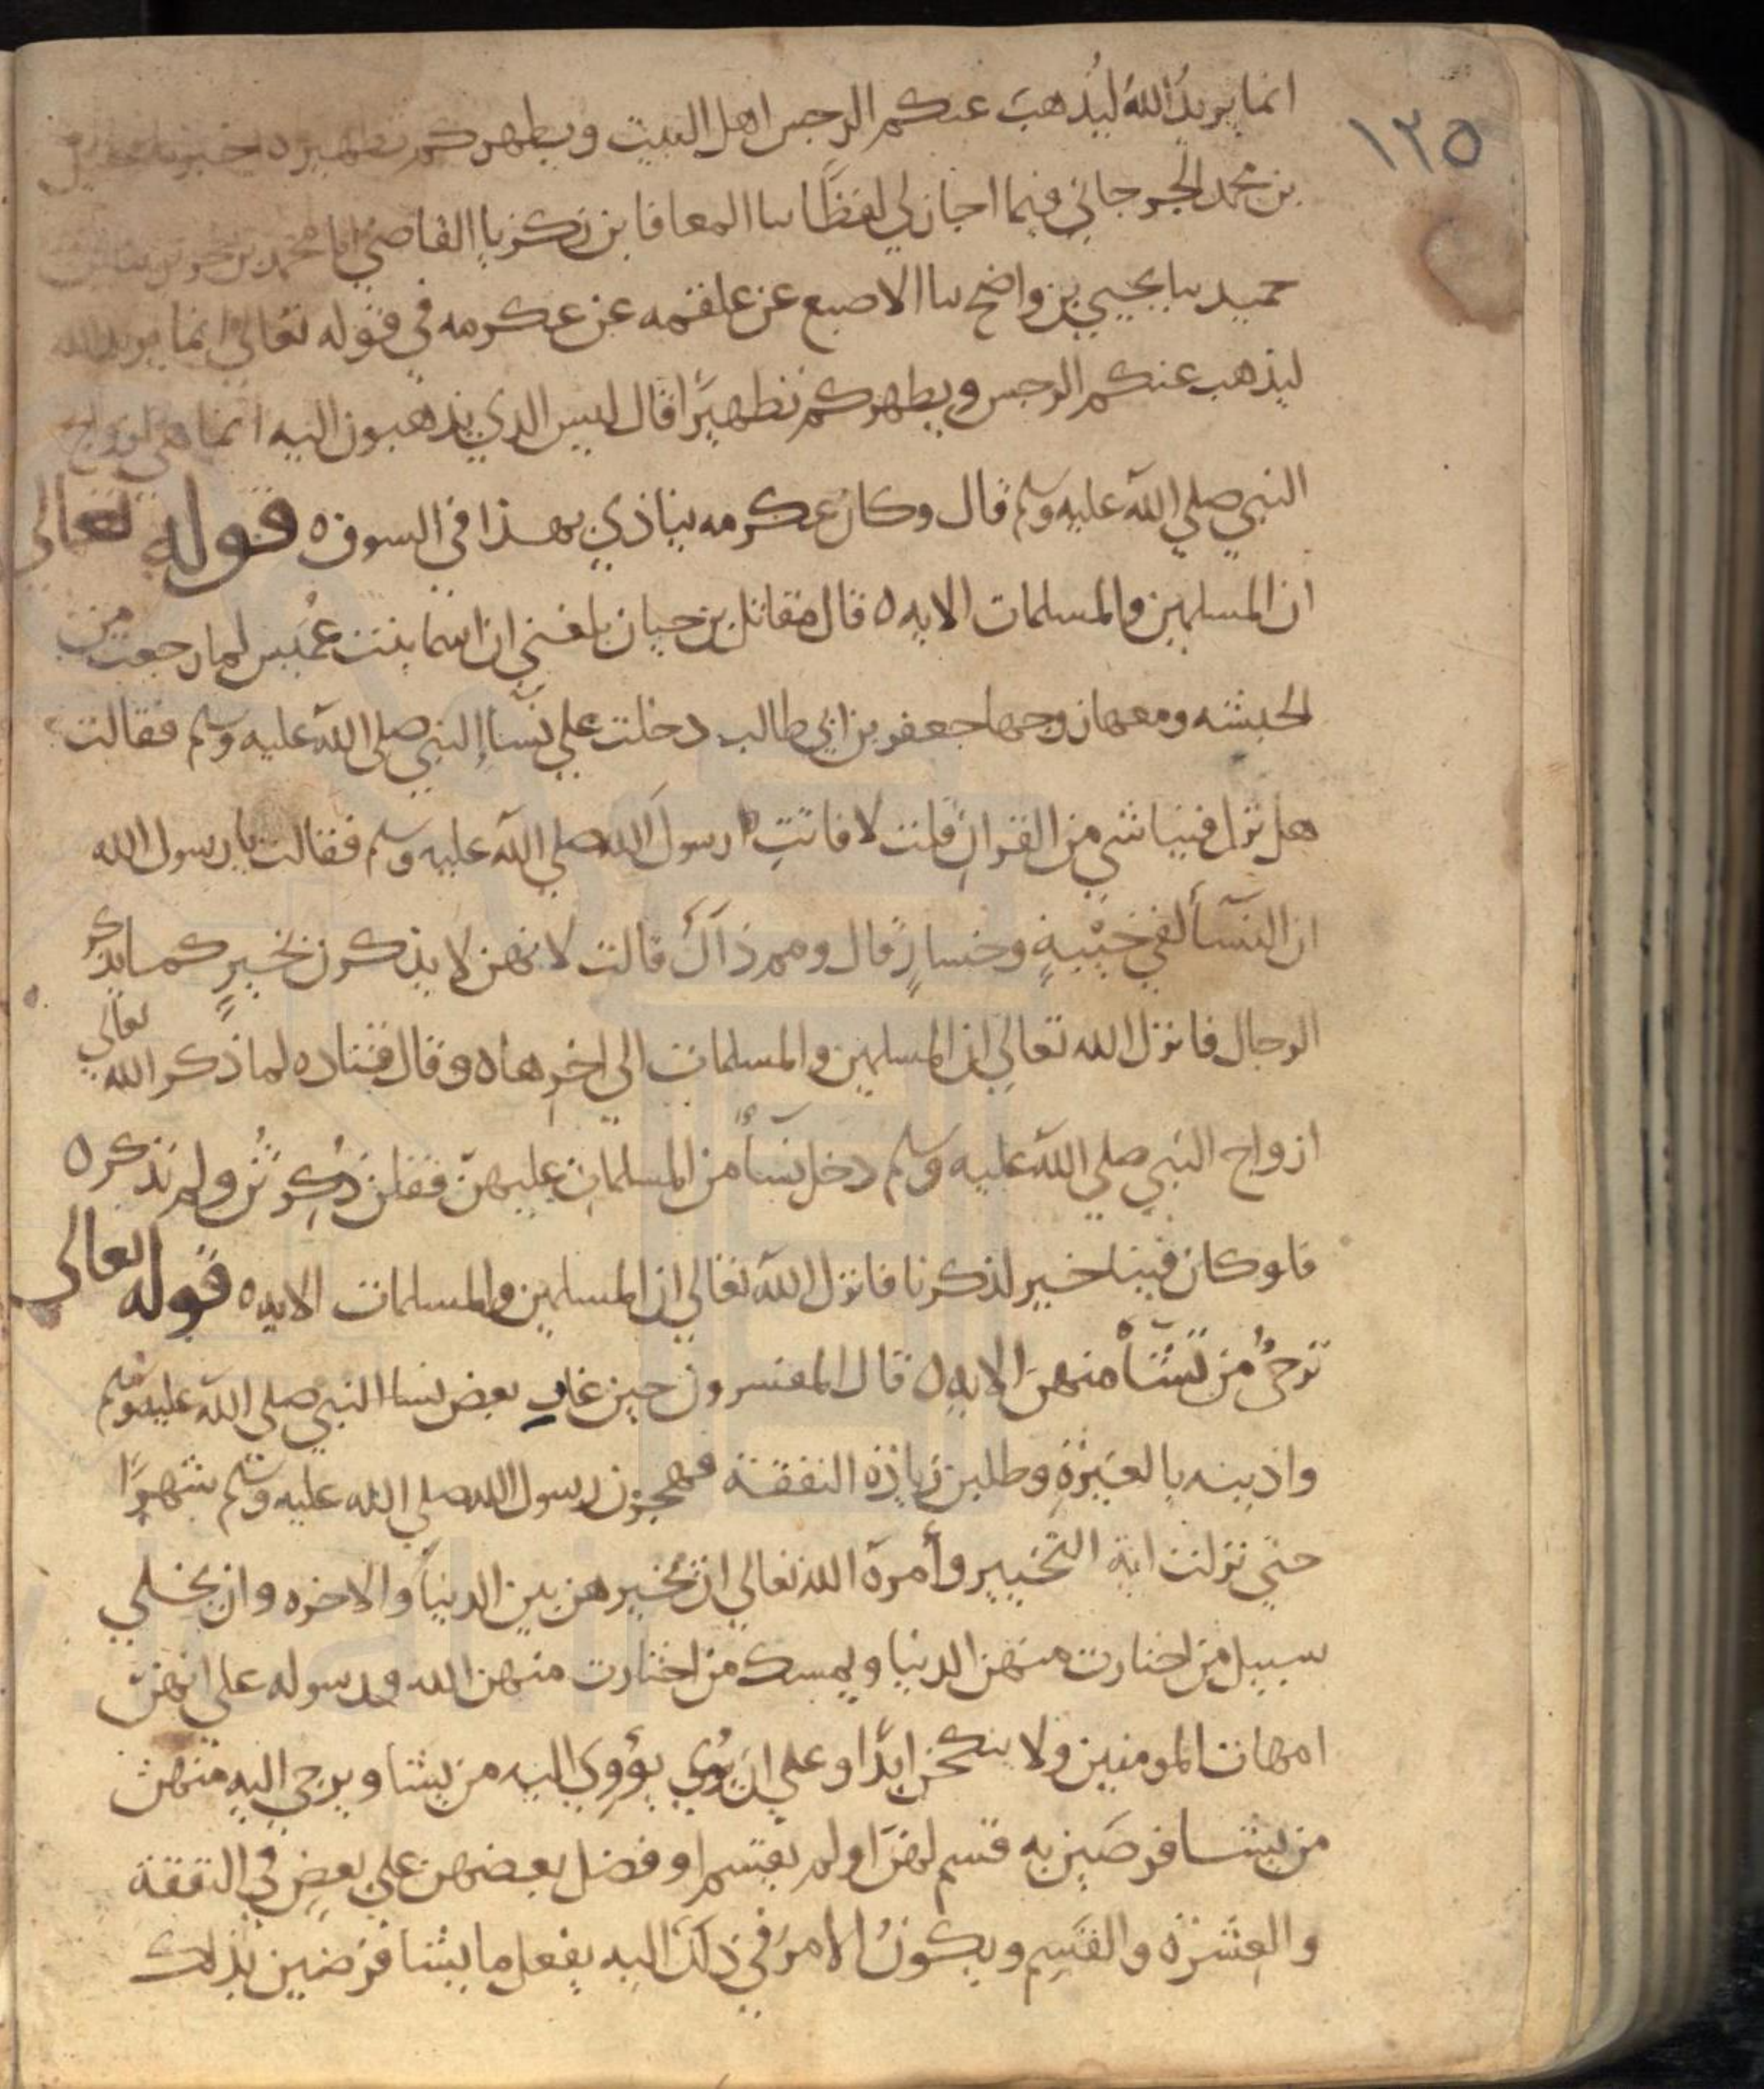 ١٢٥
انما يريد الله ليذهب عنكم الرجس اهل البيت ويطهركم تطهيرا ه اخبرنا عقيل
بن محمد الجرجاني فيما اجاز لي لفظًا سا المعافا بن زكريا القاضي انا محمد بن جرير سا بن
حميد سا يحيي بن واضح سا الاصبع عن علقمه عن عكرمه في قوله تعالى انما يريد الله
ليذهب عنكم الرجس ويطهركم تطهيرًا قال ليس الذي يذهبون اليه انما هي ازواج
النبي صلي الله عليه وسلم قال وكان عكرمه ينادي بهذا في السوق ه قوله تعالى
ان المسلمين والمسلمات الايه ه قال مقاتل بن حيان بلغني ان اسما بنت عُمَيس لما رجعت من
الحبشه ومعها زوجها جعفر بن ابي طالب دخلت علي نسا النبي صلى الله عليه وسلم فقالت
هل نزل فينا شي من القران قلن لا فاتت رسول الله صلي الله عليه وسلم فقالت يا رسول الله
ان النسآ لفي خيْبةٍ وخسارٍ قال ومم ذاك قالت لانهن لا يذكرن بخيرٍ كما يذكر
الرجال فانزل الله تعالي ان المسلمين والمسلمات الى اخرها ه وقال قتاده لما ذكر الله تعالي
ازواج النبي صلي الله عليه وسلم دخل نسآ من المسلمات عليهنّ فقلن ذُكِرتُن ولم نذكر ه
فلو كان فينا خير لذكرنا فانزل الله تعالي ان المسلمين والمسلمات الايه ه قوله تعالى
ترجئُ من تشآء منهن الايه ه قال المفسرون حين غار بعض نسا النبي صلي الله عليه وسلم
واذينه بالغَيْرةِ وطلبن زيادة النفقة فهجرهن رسول الله صلي الله عليه وسلم شهرًا
حتي نزلت اية التخيير وأمره الله تعالي ان يخيرهن بين الدنيا والاخره وان يخلي
سبيل من اختارت منهن الدنيا ويمسك من اختارت منهن الله ورسوله علي انهنّ
امهات المومنين ولا ينكحن ابدًا وعلي ان يؤوي اليه من يشا ويرجي اليه منهن
من يشا فرضين به قسم لهن اولم يقسم او فضل بعضهن علي بعضٍ في النفقة
والعِشرة والقَسم ويكونُ الامرُ في ذلك اليه يفعل ما يشا فرضين بذلك